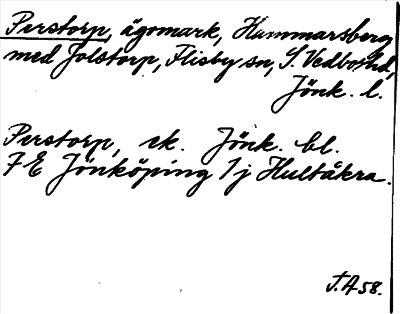 Perstorp, ägomark, Hammarsberg
med Jolstorp, Flisby sn, S. Vedbo hd,
Jönk. l.
Perstorp, ek. Jönk. bl.
7 E Jönköping 1 j Hultåkra.
J.A 58.